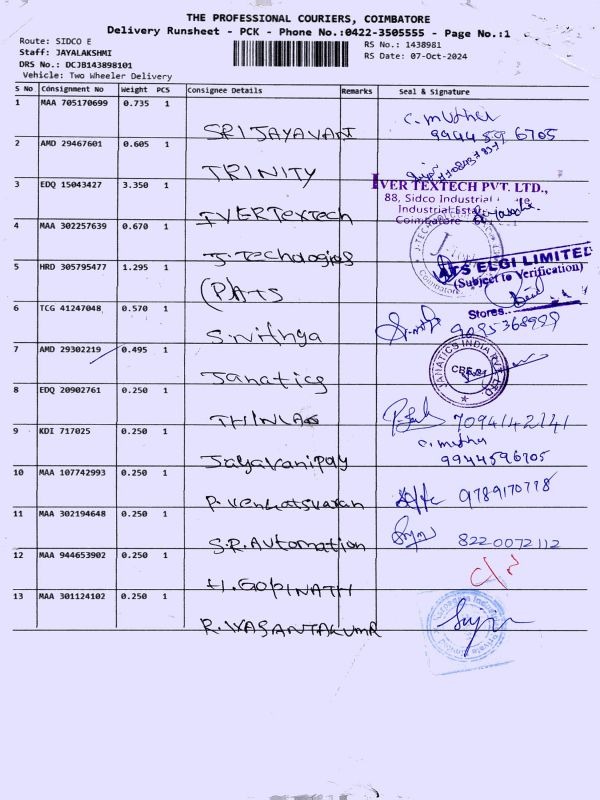 THE PROFESSIONAL COURIERS, COIMBATORE
Delivery Runsheet - PCK - Phone No.:0422-3505555 - Page No.:1
Route: SIDCO E
RS No.: 1438981
Staff: JAYALAKSHMI
RS Date: 07-Oct-2024
DRS No.: DCJB143898101
Vehicle: Two Wheeler Delivery
S No Consignment No Weight PCS Consignee Details Remarks Seal & Signature
1 MAA 705170699 0.735 1 SRI JAYAVANI C. muthu
9944596705
2 AMD 29467601 0.605 1 TRINITY
3 EDQ 15043427 3.350 1 IVERTexTech IVER TEXTECH PVT. LTD.,
88, Sidco Industrial
Industrial Estate
Coimbatore
4 MAA 302257639 0.670 1 J. Techologies
5 HRD 305795477 1.295 1 (P)ATS ATS ELGI LIMITED
(Subject to Verification)
Stores
6 TCG 41247048 0.570 1 S. nithya
7 AMD 29302219 0.495 1 Janatics JANATICS INDIA PVT LTD
CBE
8 EDQ 20902761 0.250 1 THINLAS 7094142141
9 KDI 717025 0.250 1 Jayavanipay C. muthu
9944596705
10 MAA 107742993 0.250 1 P. Venkatsvaran 9789170778
11 MAA 302194648 0.250 1 S.R. Automation 8220072112
12 MAA 944653902 0.250 1 H. GOPINATH
13 MAA 301124102 0.250 1 R. WASANTAKUMR